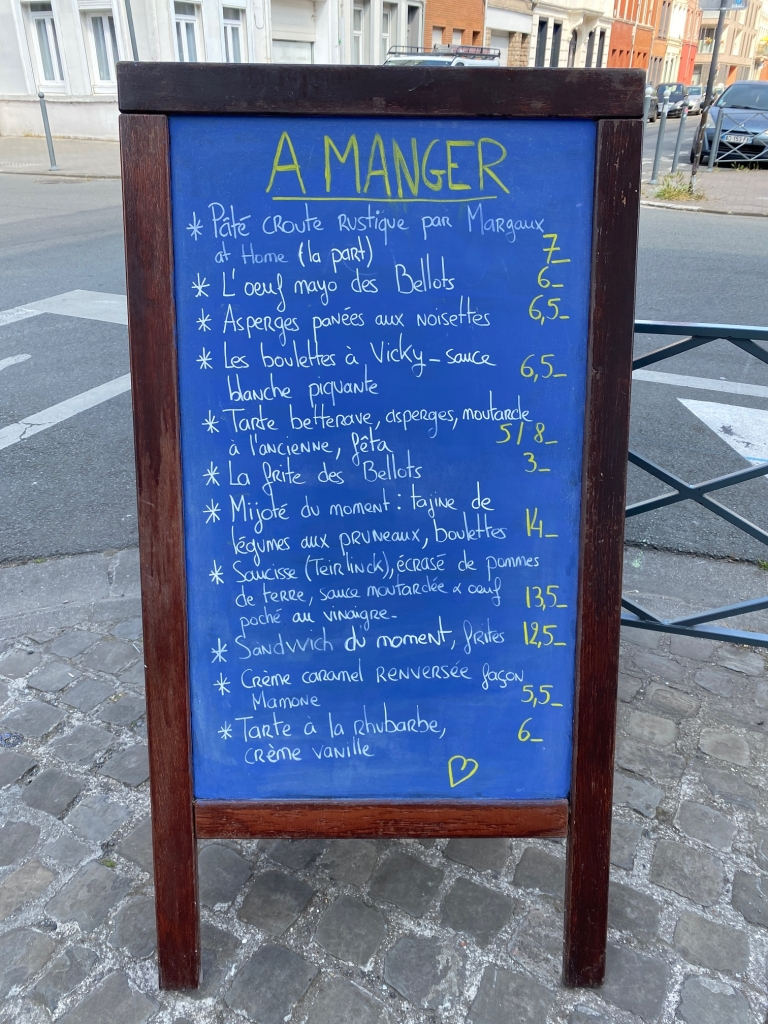 A MANGER
* Pâté CROUTE RUSTIQUE PAR MARGAUX
at Home (la part) 7_
* L'oeuf mayo des Bellots 6_
* Asperges panées aux noisettes 6,5_
* Les boulettes à Vicky_sauce
blanche piquante 6,5_
* Tarte betterave, asperges, moutarde
à l'ancienne, féta 5/8_
* La frite des Bellots 3_
* Mijoté du moment : tajine de
légumes aux pruneaux, boulettes 14_
* Saucisse (Teirlinck), écrasé de pommes
de terre, sauce moutardée & oeuf 13,5_
poché au vinaigre_
* Sandwich du moment, frites 12,5_
* Crème caramel RENVERSÉE façon
Mamone 5,5_
* Tarte à la rhubarbe, 6_
crème vanille